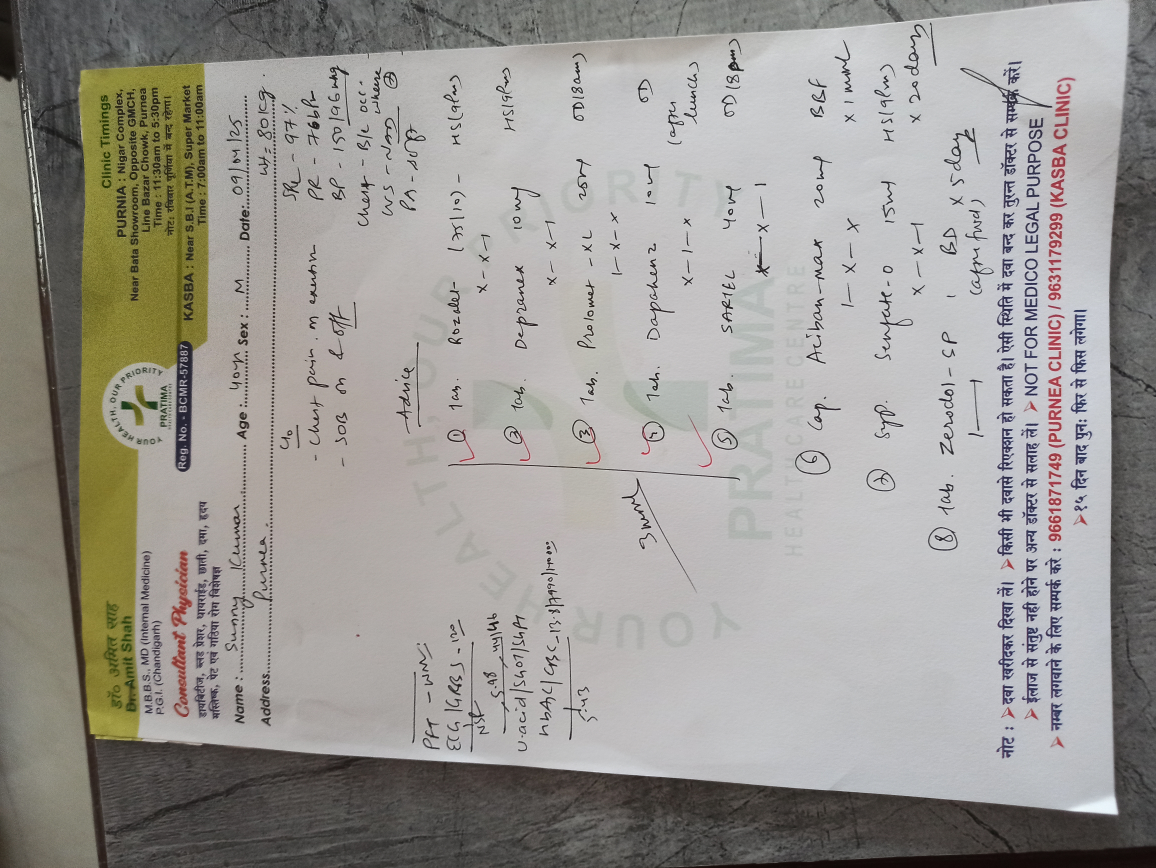 डॉ० अमित साह
Dr. Amit Shah
M.B.B.S., MD (Internal Medicine)
P.G.I. (Chandigarh)
Consultant Physician
डायबिटीज, ब्लड प्रेशर, थायराईड, छाती, दमा, हृदय
मस्तिष्क, पेट एवं गठिया रोग विशेषज्ञ
YOUR HEALTH, OUR PRIORITY
PRATIMA
HEALTHCARE CENTRE
Reg. No. - BCMR-57887
Clinic Timings
PURNIA : Nigar Complex,
Near Bata Showroom, Opposite GMCH,
Line Bazar Chowk, Purnea
Time : 11:30am to 5:30pm
नोट: रविवार पूर्णिया में बन्द रहेगा।
KASBA : Near S.B.I (A.T.M), Super Market
Time : 7:00am to 11:00am
Name : Sunny Kumar Age : 40yr Sex : M Date: 09/04/25
Address. Purnea. Wt = 80 kg.
c/o
- Chest pain. on exertion
- SOB on & off
97 %
PR - 76 bpm
BP - 150/96 mmHg
Chest - B/L occ. wheeze
CVS - NAD
PA - soft
PFT -
ECG / GRBS - 120
5.98 44/46
U-acid / SGOT / SGPT
HbA1C / CBC - 13.8/7990/
5.43
Advice
① Tab. Rozdet (75/10) - HS (9pm)
x - x - 1
② Tab. Depranex 10mg HS (9pm)
x - x - 1
③ Tab. Prolomet - XL 25mg OD (8am)
1 - x - x
④ Tab. Dapahenz 10mg OD (after lunch)
x - 1 - x
⑤ Tab. SARTEL 40mg OD (8pm)
x - x - 1
⑥ Cap. Aciban-max 20mg BBF
1 - x - x x 1 month
⑦ Syp. Senfate-O 15ml HS (9pm)
x - x - 1 x 20 days
⑧ Tab. Zerodol-SP 1 BD x 5 day
1 — 1 (after food)
YOUR HEALTH, OUR PRIORITY
PRATIMA
HEALTHCARE CENTRE
नोट : ➤ दवा खरीदकर दिखा लें। ➤ किसी भी दवासे रिएक्शन हो सकता है। ऐसी स्थिति में दवा बन्द कर तुरन्त डॉक्टर से सम्पर्क करें।
➤ ईलाज से संतुष्ट नही होने पर अन्य डॉक्टर से सलाह लें। ➤ NOT FOR MEDICO LEGAL PURPOSE
➤ नम्बर लगवाने के लिए सम्पर्क करे : 9661871749 (PURNEA CLINIC) / 9631179299 (KASBA CLINIC)
➤ १५ दिन बाद पुन: फिर से फिस लगेगा।